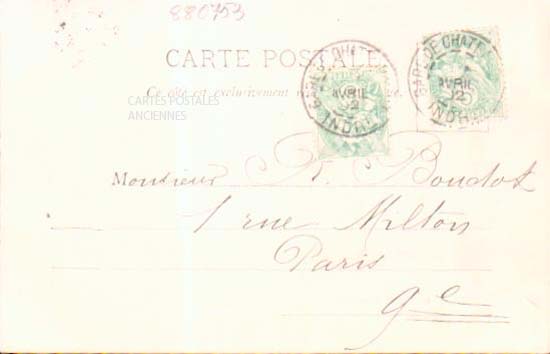 880753
CARTE POSTALE
Ce côté est exclusivement
CARTES POSTALES
ANCIENNES
GARE DE CHATE
AVRIL
02
INDRE
GARE DE CHATE
AVRIL
02
INDRE
Monsieur R. Boudot
1 rue Milton
Paris
9e